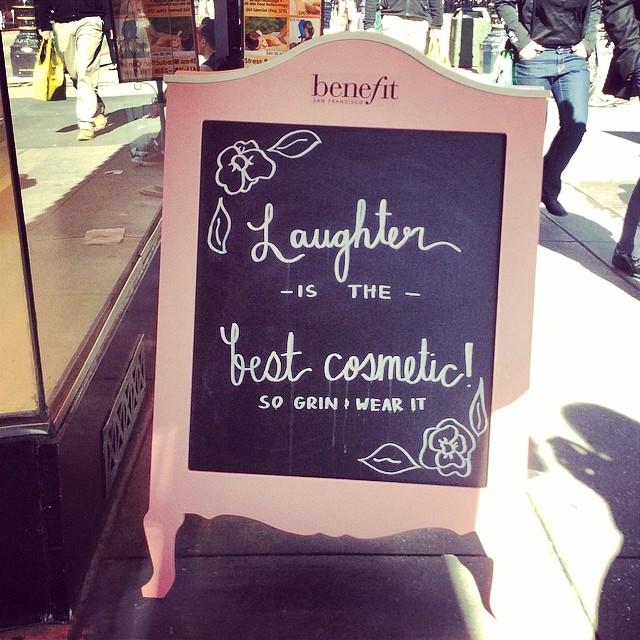 benefit
SAN FRANCISCO
Laughter
- IS THE -
best cosmetic!
SO GRIN & WEAR IT